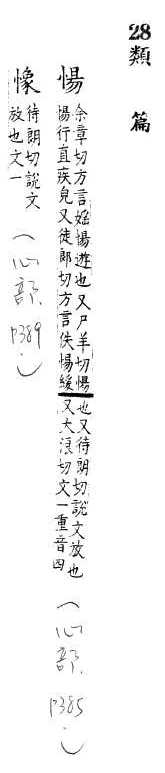 28類篇
惕
余章切方言婸惕遊也又尸羊切惕
惕行直疾皃又徒郎切方言佚惕緩
也又待朗切說文放也
又大浪切文一重音四
(心部 P385)
憽
待朗切說文
放也文一
(心部 P389)